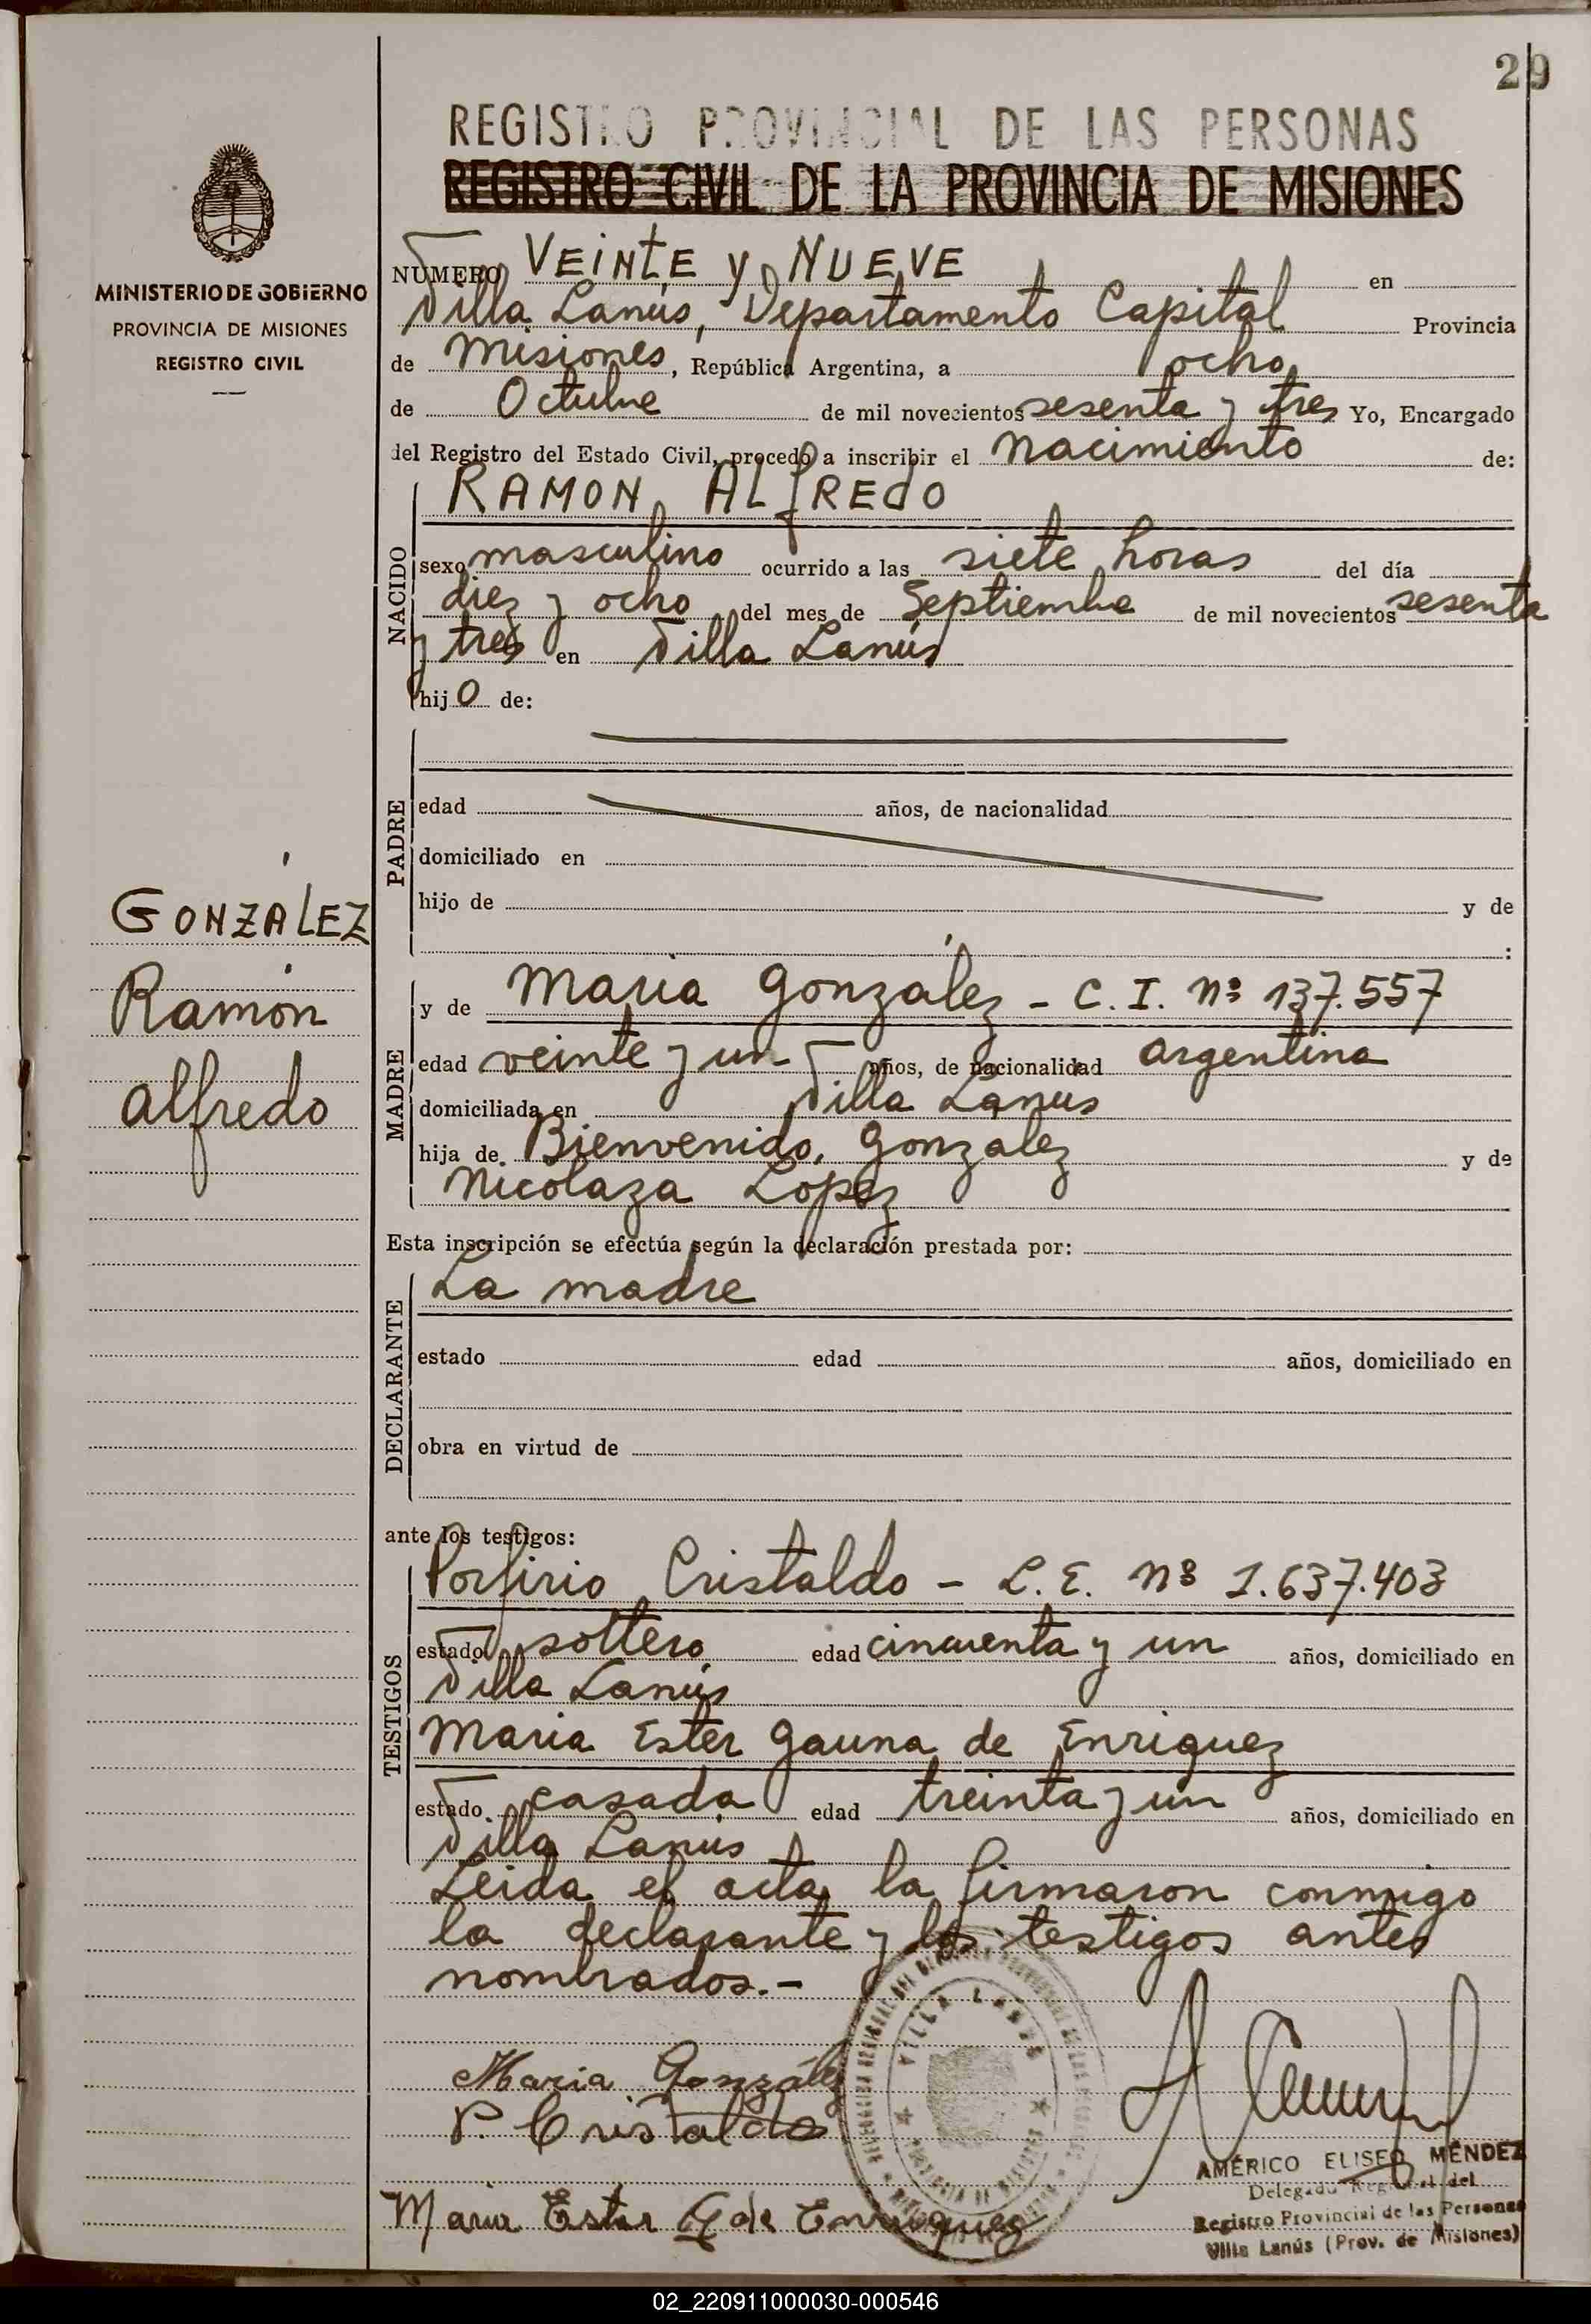 29
REGISTRO PROVINCIAL DE LAS PERSONAS
REGISTRO CIVIL DE LA PROVINCIA DE MISIONES
MINISTERIO DE GOBIERNO
PROVINCIA DE MISIONES
REGISTRO CIVIL
NUMERO VEINTE y NUEVE en
Villa Lanús, Departamento Capital Provincia
de Misiones, República Argentina, a ocho
de Octubre de mil novecientos sesenta y tres Yo, Encargado
del Registro del Estado Civil, procedo a inscribir el nacimiento de:
NACIDO
RAMON ALfREdO
sexo masculino ocurrido a las siete horas del día
diez y ocho del mes de Septiembre de mil novecientos sesenta
y tres en Villa Lanús
hijo de:
PADRE
edad años, de nacionalidad
domiciliado en
hijo de y de
:
GONZÁLEZ
Ramón
Alfredo
MADRE
y de Maria González - C. I. Nº 137.557
edad veinte y un años, de nacionalidad argentina
domiciliada en Villa Lanus
hija de Bienvenido Gonzalez y de
Nicolaza Lopez
Esta inscripción se efectúa según la declaración prestada por:
DECLARANTE
La madre
estado edad años, domiciliado en
obra en virtud de
ante los testigos:
TESTIGOS
Porfirio Cristaldo - L. E. Nº 1.637.403
estado soltero edad cincuenta y un años, domiciliado en
Villa Lanús
Maria Ester Gauna de Enriquez
estado casada edad treinta y un años, domiciliado en
Villa Lanús
Leida el acta la firmaron conmigo
la declarante y los testigos antes
nombrados.-
VILLA LANUS
Maria González
P. Cristaldo
AMÉRICO ELISEO MÉNDEZ
Delegado Regional del
Registro Provincial de las Personas
Villa Lanús (Prov. de Misiones)
Maria Ester G de Enriquez
02_220911000030-000546